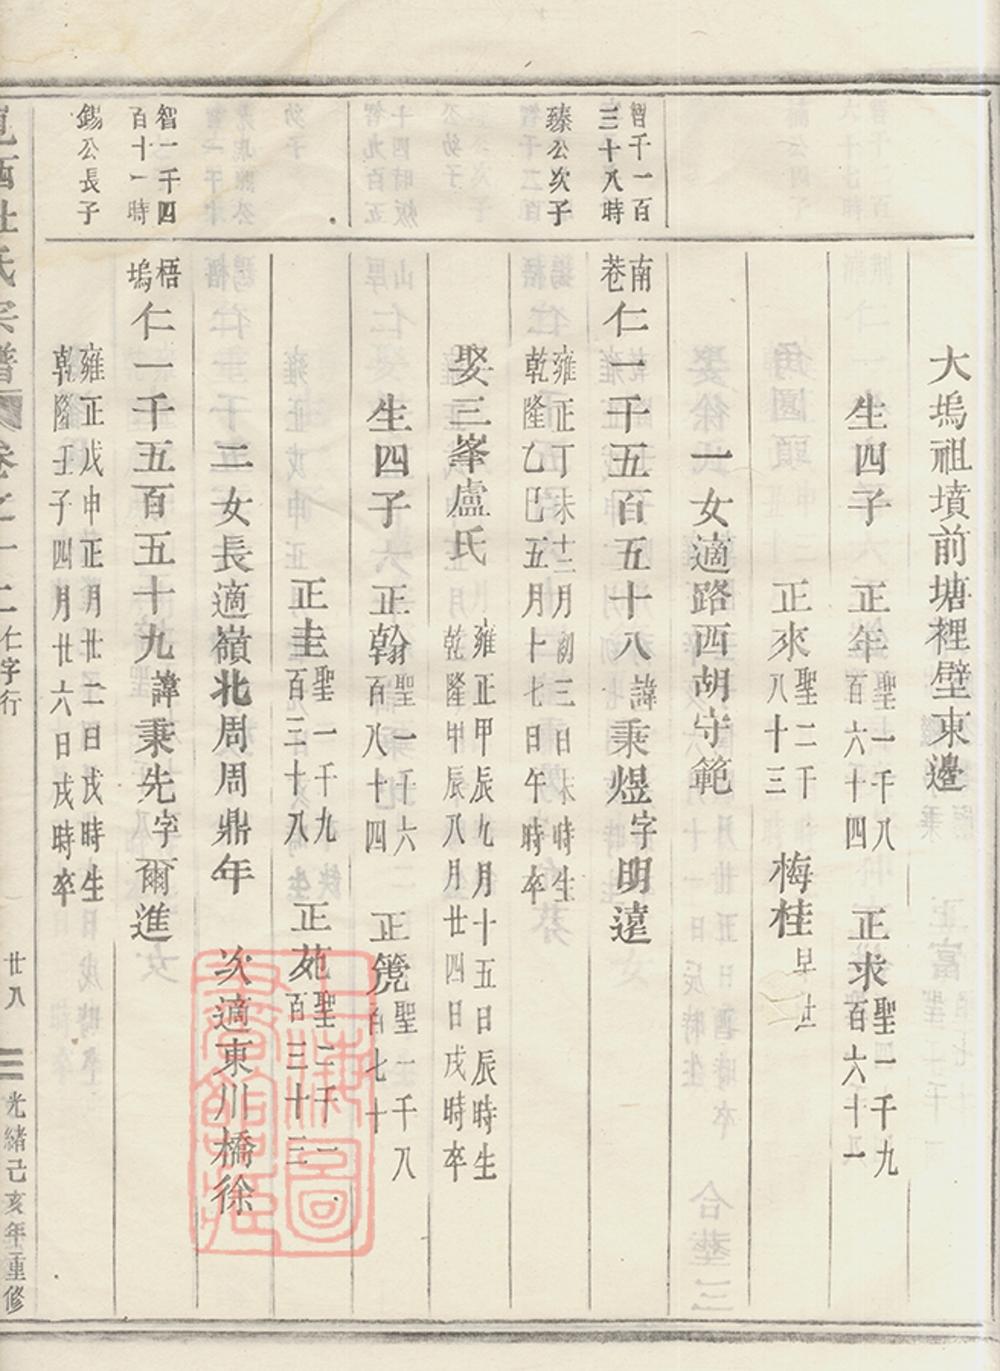 大塢祖墳前塘裡壁東邊
生四子 正年 聖一千八百六十四 正求 聖一千九百六十一
正來 聖二千八十三 梅桂 早世
一女適路西胡守範
智千一百三十八時
臻公次子
南巷 仁一千五百五十八 諱秉煜 字明遠
雍正丁未十二月初三日未時生
乾隆乙巳五月十七日午時卒
娶三峯盧氏 雍正甲辰九月十五日辰時生
乾隆甲辰八月廿四日戌時卒
生四子 正翰 聖一千六百八十四 正筦 聖一千八百七十
正圭 聖一千九百三十八 正苑 聖二千一百三十三
二女長適嶺北周周鼎年 次適東川橋徐
智一千四百十一時
錫公長子
梧塢 仁一千五百五十九 諱秉先 字爾進
雍正戊申正月廿二日戌時生
乾隆壬子四月廿六日戌時卒
杜氏宗譜 卷之十二 仁字行 廿八 光緒己亥年重修
上海圖書館藏